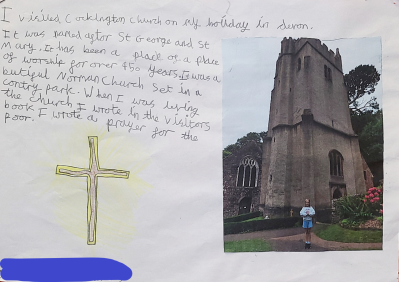 I visited Cockington Church on my holiday in Devon.
It was named after St George and St
Mary. It has been a place of a place
of worship for over 950 years. It was a
butiful Norman Church set in a
contry park. When I was
the church I wrote in the visitors
book. I wrote a prayer for the
poor.